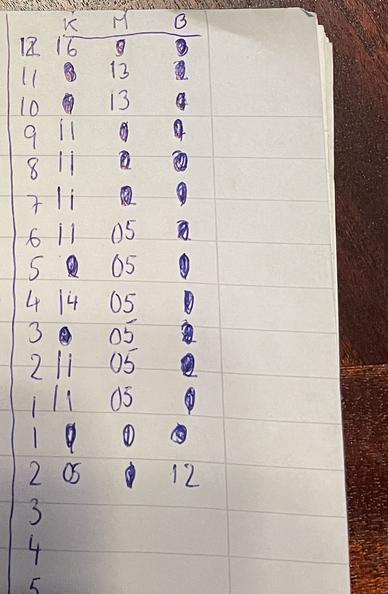 K M B
12 16
11 13
10 13
9 11
8 11
7 11
6 11 05
5 05
4 14 05
3 05
2 11 05
1 11 05
1
2 05 12
3
4
5